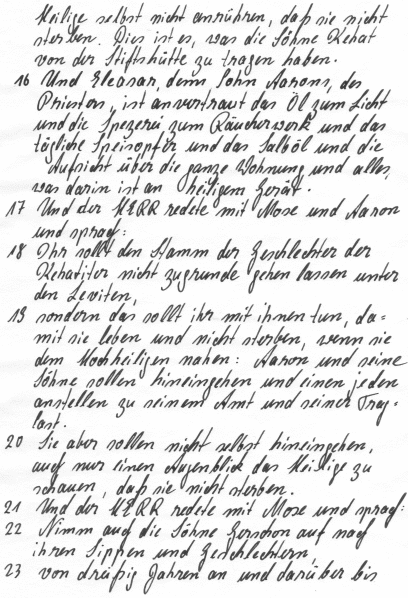 Heilige selbst nicht anrühren, daß sie nicht
sterben. Dies ist es, was die Söhne Kehat
von der Stiftshütte zu tragen haben.
16 Und Eleasar, dem Sohn Aarons, des
Priesters, ist anvertraut das Öl zum Licht
und die Spezerei zum Räucherwerk und das
tägliche Speisopfer und das Salböl und die
Aufsicht über die ganze Wohnung und alles,
was darin ist an heiligem Gerät.
17 Und der HERR redete mit Mose und Aaron
und sprach:
18 Ihr sollt den Stamm der Geschlechter der
Kehatiter nicht zugrunde gehen lassen unter
den Leviten,
19 sondern das sollt ihr mit ihnen tun, da=
mit sie leben und nicht sterben, wenn sie
dem Hochheiligen nahen: Aaron und seine
Söhne sollen hineingehen und einen jeden
anstellen zu seinem Amt und seiner Trag-
last.
20 Sie aber sollen nicht selbst hineingehen,
auch nur einen Augenblick das Heilige zu
schauen, daß sie nicht sterben.
21 Und der HERR redete mit Mose und sprach:
22 Nimm auch die Söhne Gerschon auf nach
ihren Sippen und Geschlechtern,
23 von dreißig Jahren an und darüber bis